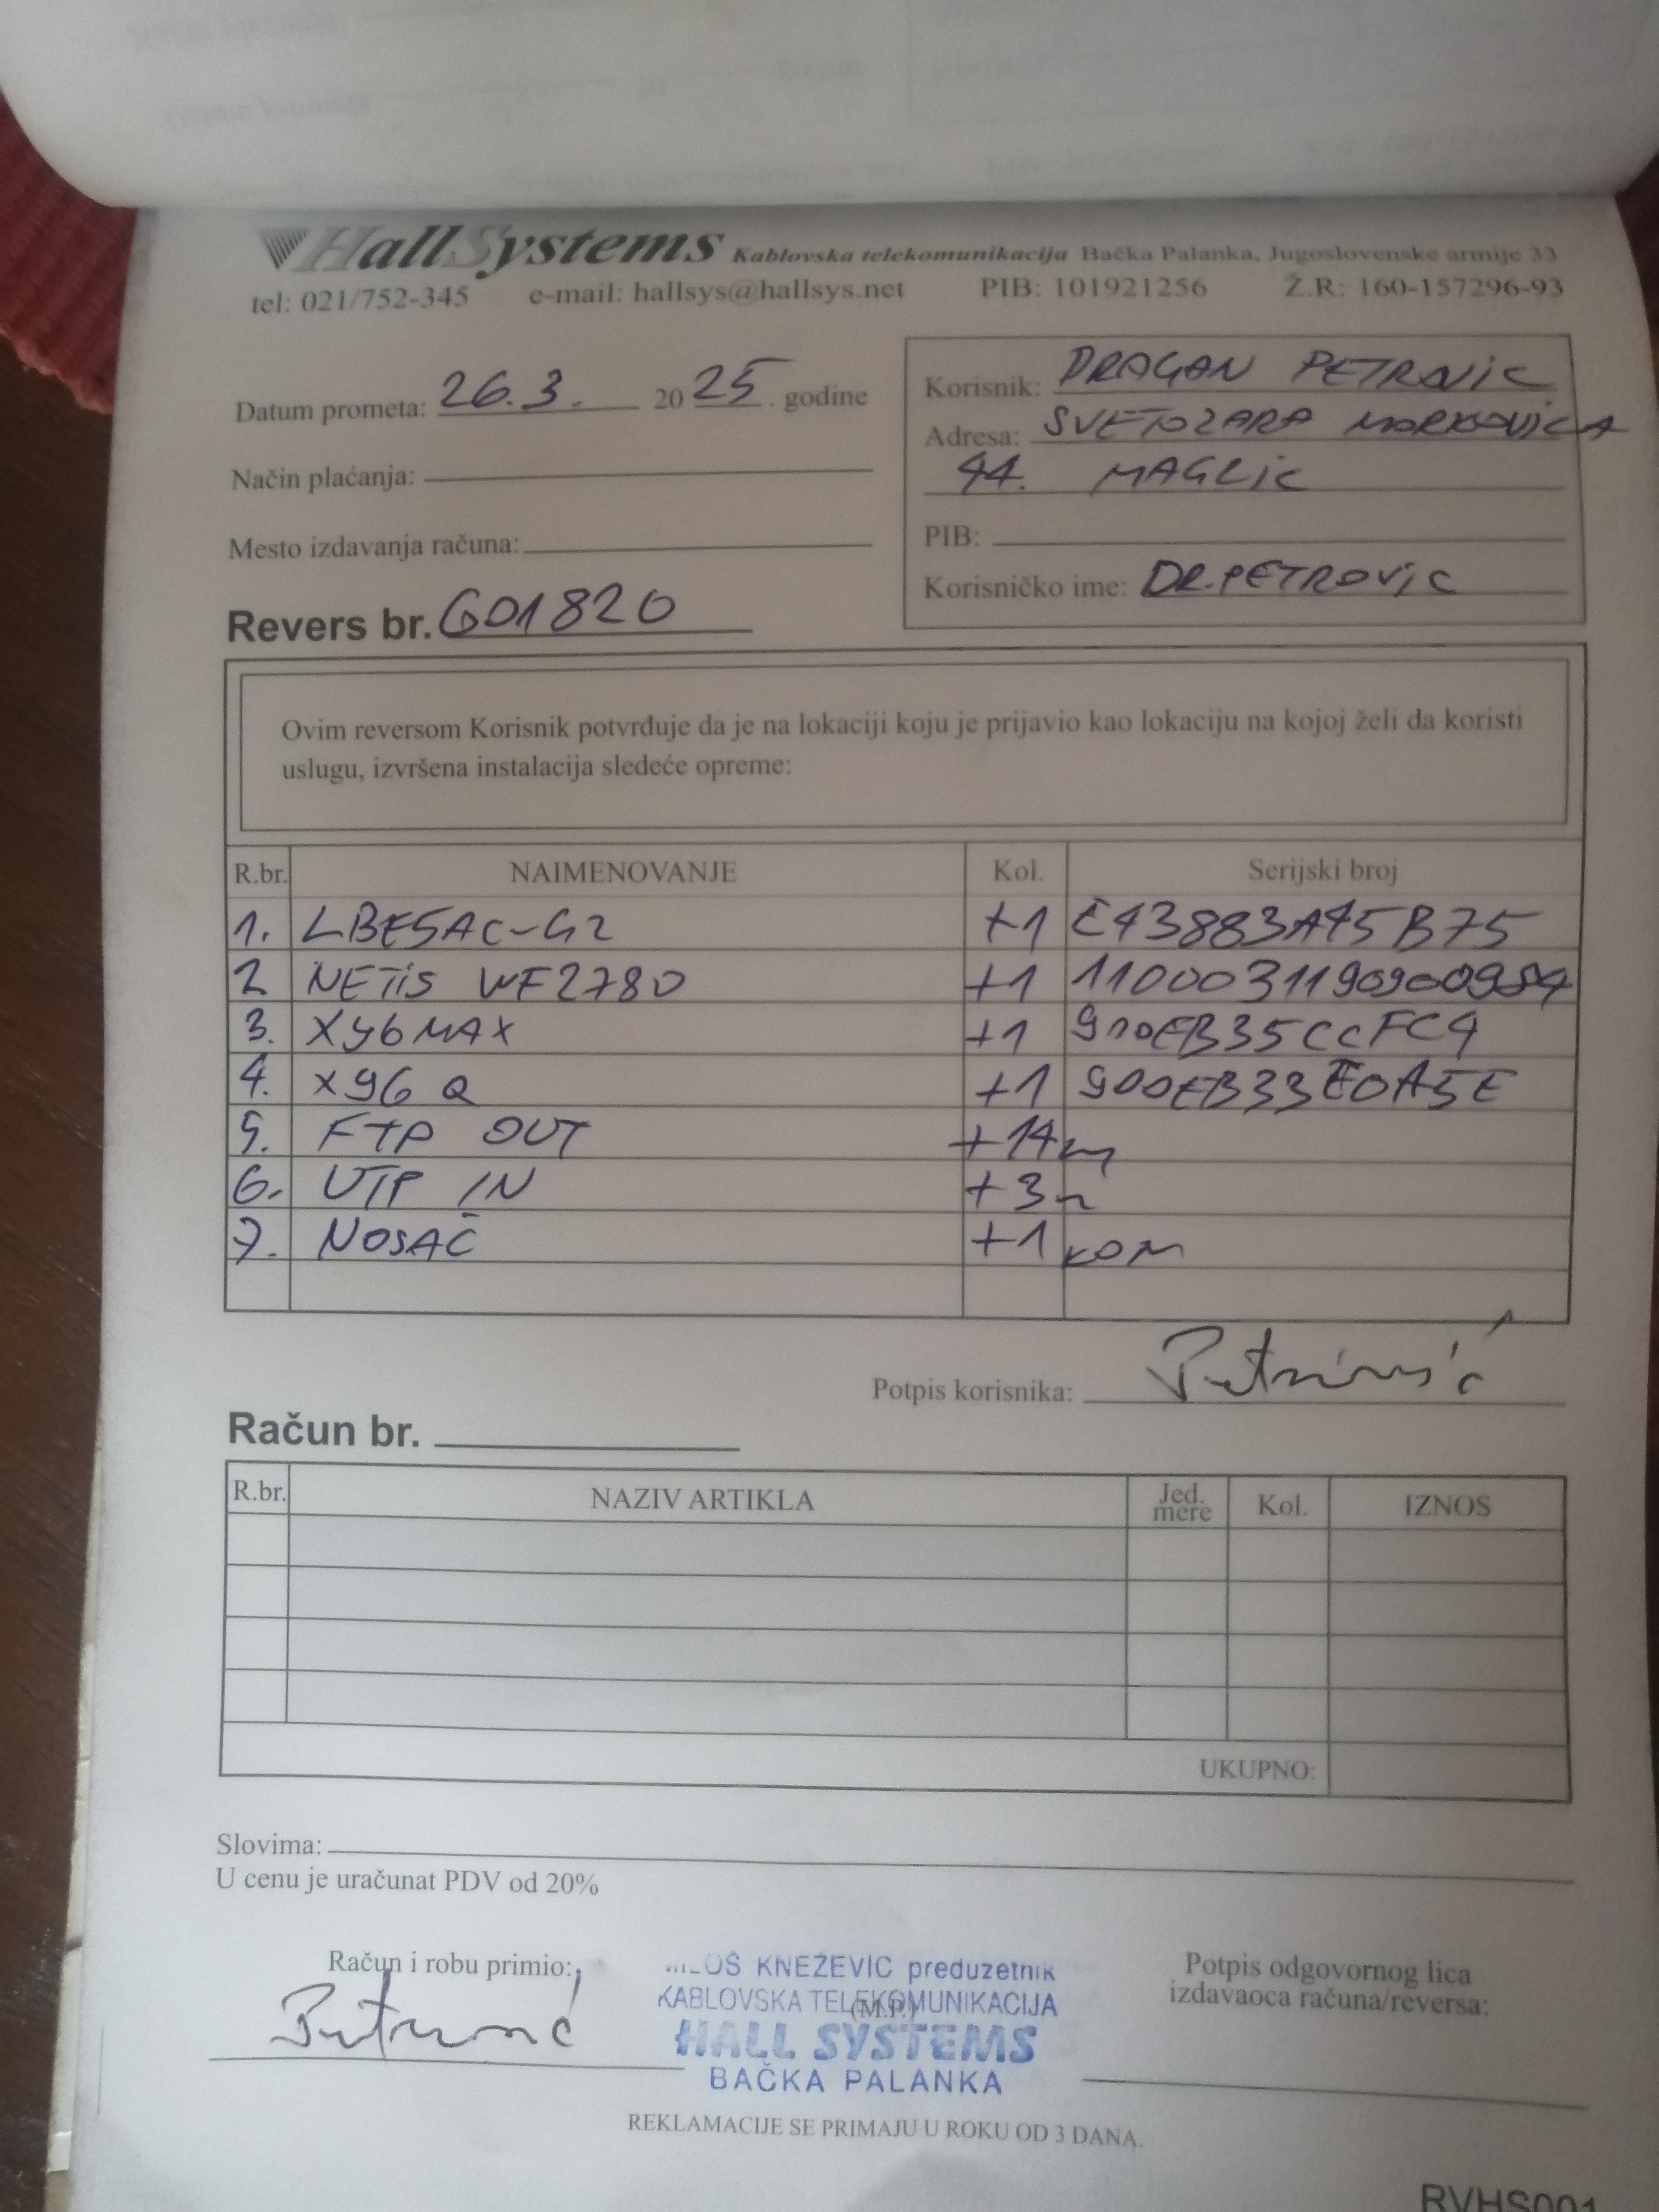 HallSystems Kablovska telekomunikacija Bačka Palanka, Jugoslovenske armije 33
tel: 021/752-345 e-mail: hallsys@hallsys.net PIB: 101921256 Ž.R: 160-157296-93
Datum prometa: 26.3. 2025. godine
Način plaćanja:
Mesto izdavanja računa:
Revers br. G01820
Korisnik: DRAGAN PETROVIC
Adresa: SVETOZARA MARKOVICA
44. MAGLIC
PIB:
Korisničko ime: DR.PETROVIC
Ovim reversom Korisnik potvrđuje da je na lokaciji koju je prijavio kao lokaciju na kojoj želi da koristi
uslugu, izvršena instalacija sledeće opreme:
R.br. NAIMENOVANJE Kol. Serijski broj
1. LBE5AC-G2 +1 E43883A45B75
2 NETIS WF2780 +1
3. X96MAX +1 910EB35CCFC4
4. X96 Q +1 900EB33E0A5E
5. FTP OUT +14m
6. UTP IN +3m
7. NOSAČ +1 KOM
Potpis korisnika: Petrović
Račun br.
R.br. NAZIV ARTIKLA Jed. mere Kol. IZNOS
UKUPNO:
Slovima:
U cenu je uračunat PDV od 20%
Račun i robu primio:
Petrović
MILOŠ KNEŽEVIĆ preduzetnik
KABLOVSKA TELEKOMUNIKACIJA
(M.P.)
HALL SYSTEMS
BAČKA PALANKA
Potpis odgovornog lica
izdavaoca računa/reversa:
REKLAMACIJE SE PRIMAJU U ROKU OD 3 DANA.
RVHS001